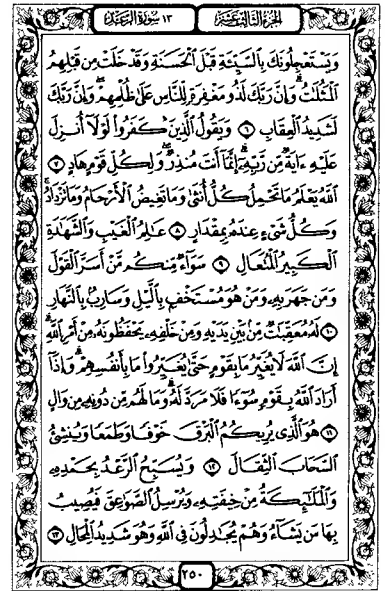 الجزء الثالث عشر ١٣ سورة الرعد
وَيَسْتَعْجِلُونَكَ بِالسَّيِّئَةِ قَبْلَ الْحَسَنَةِ وَقَدْ خَلَتْ مِن قَبْلِهِمُ
الْمَثُلَاتُ ۗ وَإِنَّ رَبَّكَ لَذُو مَغْفِرَةٍ لِّلنَّاسِ عَلَىٰ ظُلْمِهِمْ ۖ وَإِنَّ رَبَّكَ
لَشَدِيدُ الْعِقَابِ ٦ وَيَقُولُ الَّذِينَ كَفَرُوا لَوْلَا أُنزِلَ
عَلَيْهِ ءَايَةٌ مِّن رَّبِّهِ ۗ إِنَّمَا أَنتَ مُنذِرٌ ۖ وَلِكُلِّ قَوْمٍ هَادٍ ٧
اللَّهُ يَعْلَمُ مَا تَحْمِلُ كُلُّ أُنثَىٰ وَمَا تَغِيضُ الْأَرْحَامُ وَمَا تَزْدَادُ ۖ
وَكُلُّ شَيْءٍ عِندَهُ بِمِقْدَارٍ ٨ عَالِمُ الْغَيْبِ وَالشَّهَادَةِ
الْكَبِيرُ الْمُتَعَالِ ٩ سَوَاءٌ مِّنكُم مَّنْ أَسَرَّ الْقَوْلَ
وَمَن جَهَرَ بِهِ وَمَنْ هُوَ مُسْتَخْفٍ بِاللَّيْلِ وَسَارِبٌ بِالنَّهَارِ
١٠ لَهُ مُعَقِّبَاتٌ مِّن بَيْنِ يَدَيْهِ وَمِنْ خَلْفِهِ يَحْفَظُونَهُ مِنْ أَمْرِ اللَّهِ ۗ
إِنَّ اللَّهَ لَا يُغَيِّرُ مَا بِقَوْمٍ حَتَّىٰ يُغَيِّرُوا مَا بِأَنفُسِهِمْ ۗ وَإِذَا
أَرَادَ اللَّهُ بِقَوْمٍ سُوءًا فَلَا مَرَدَّ لَهُ ۚ وَمَا لَهُم مِّن دُونِهِ مِن وَالٍ
١١ هُوَ الَّذِي يُرِيكُمُ الْبَرْقَ خَوْفًا وَطَمَعًا وَيُنشِئُ
السَّحَابَ الثِّقَالَ ١٢ وَيُسَبِّحُ الرَّعْدُ بِحَمْدِهِ
وَالْمَلَائِكَةُ مِنْ خِيفَتِهِ وَيُرْسِلُ الصَّوَاعِقَ فَيُصِيبُ
بِهَا مَن يَشَاءُ وَهُمْ يُجَادِلُونَ فِي اللَّهِ وَهُوَ شَدِيدُ الْمِحَالِ ١٣
٢٥٠